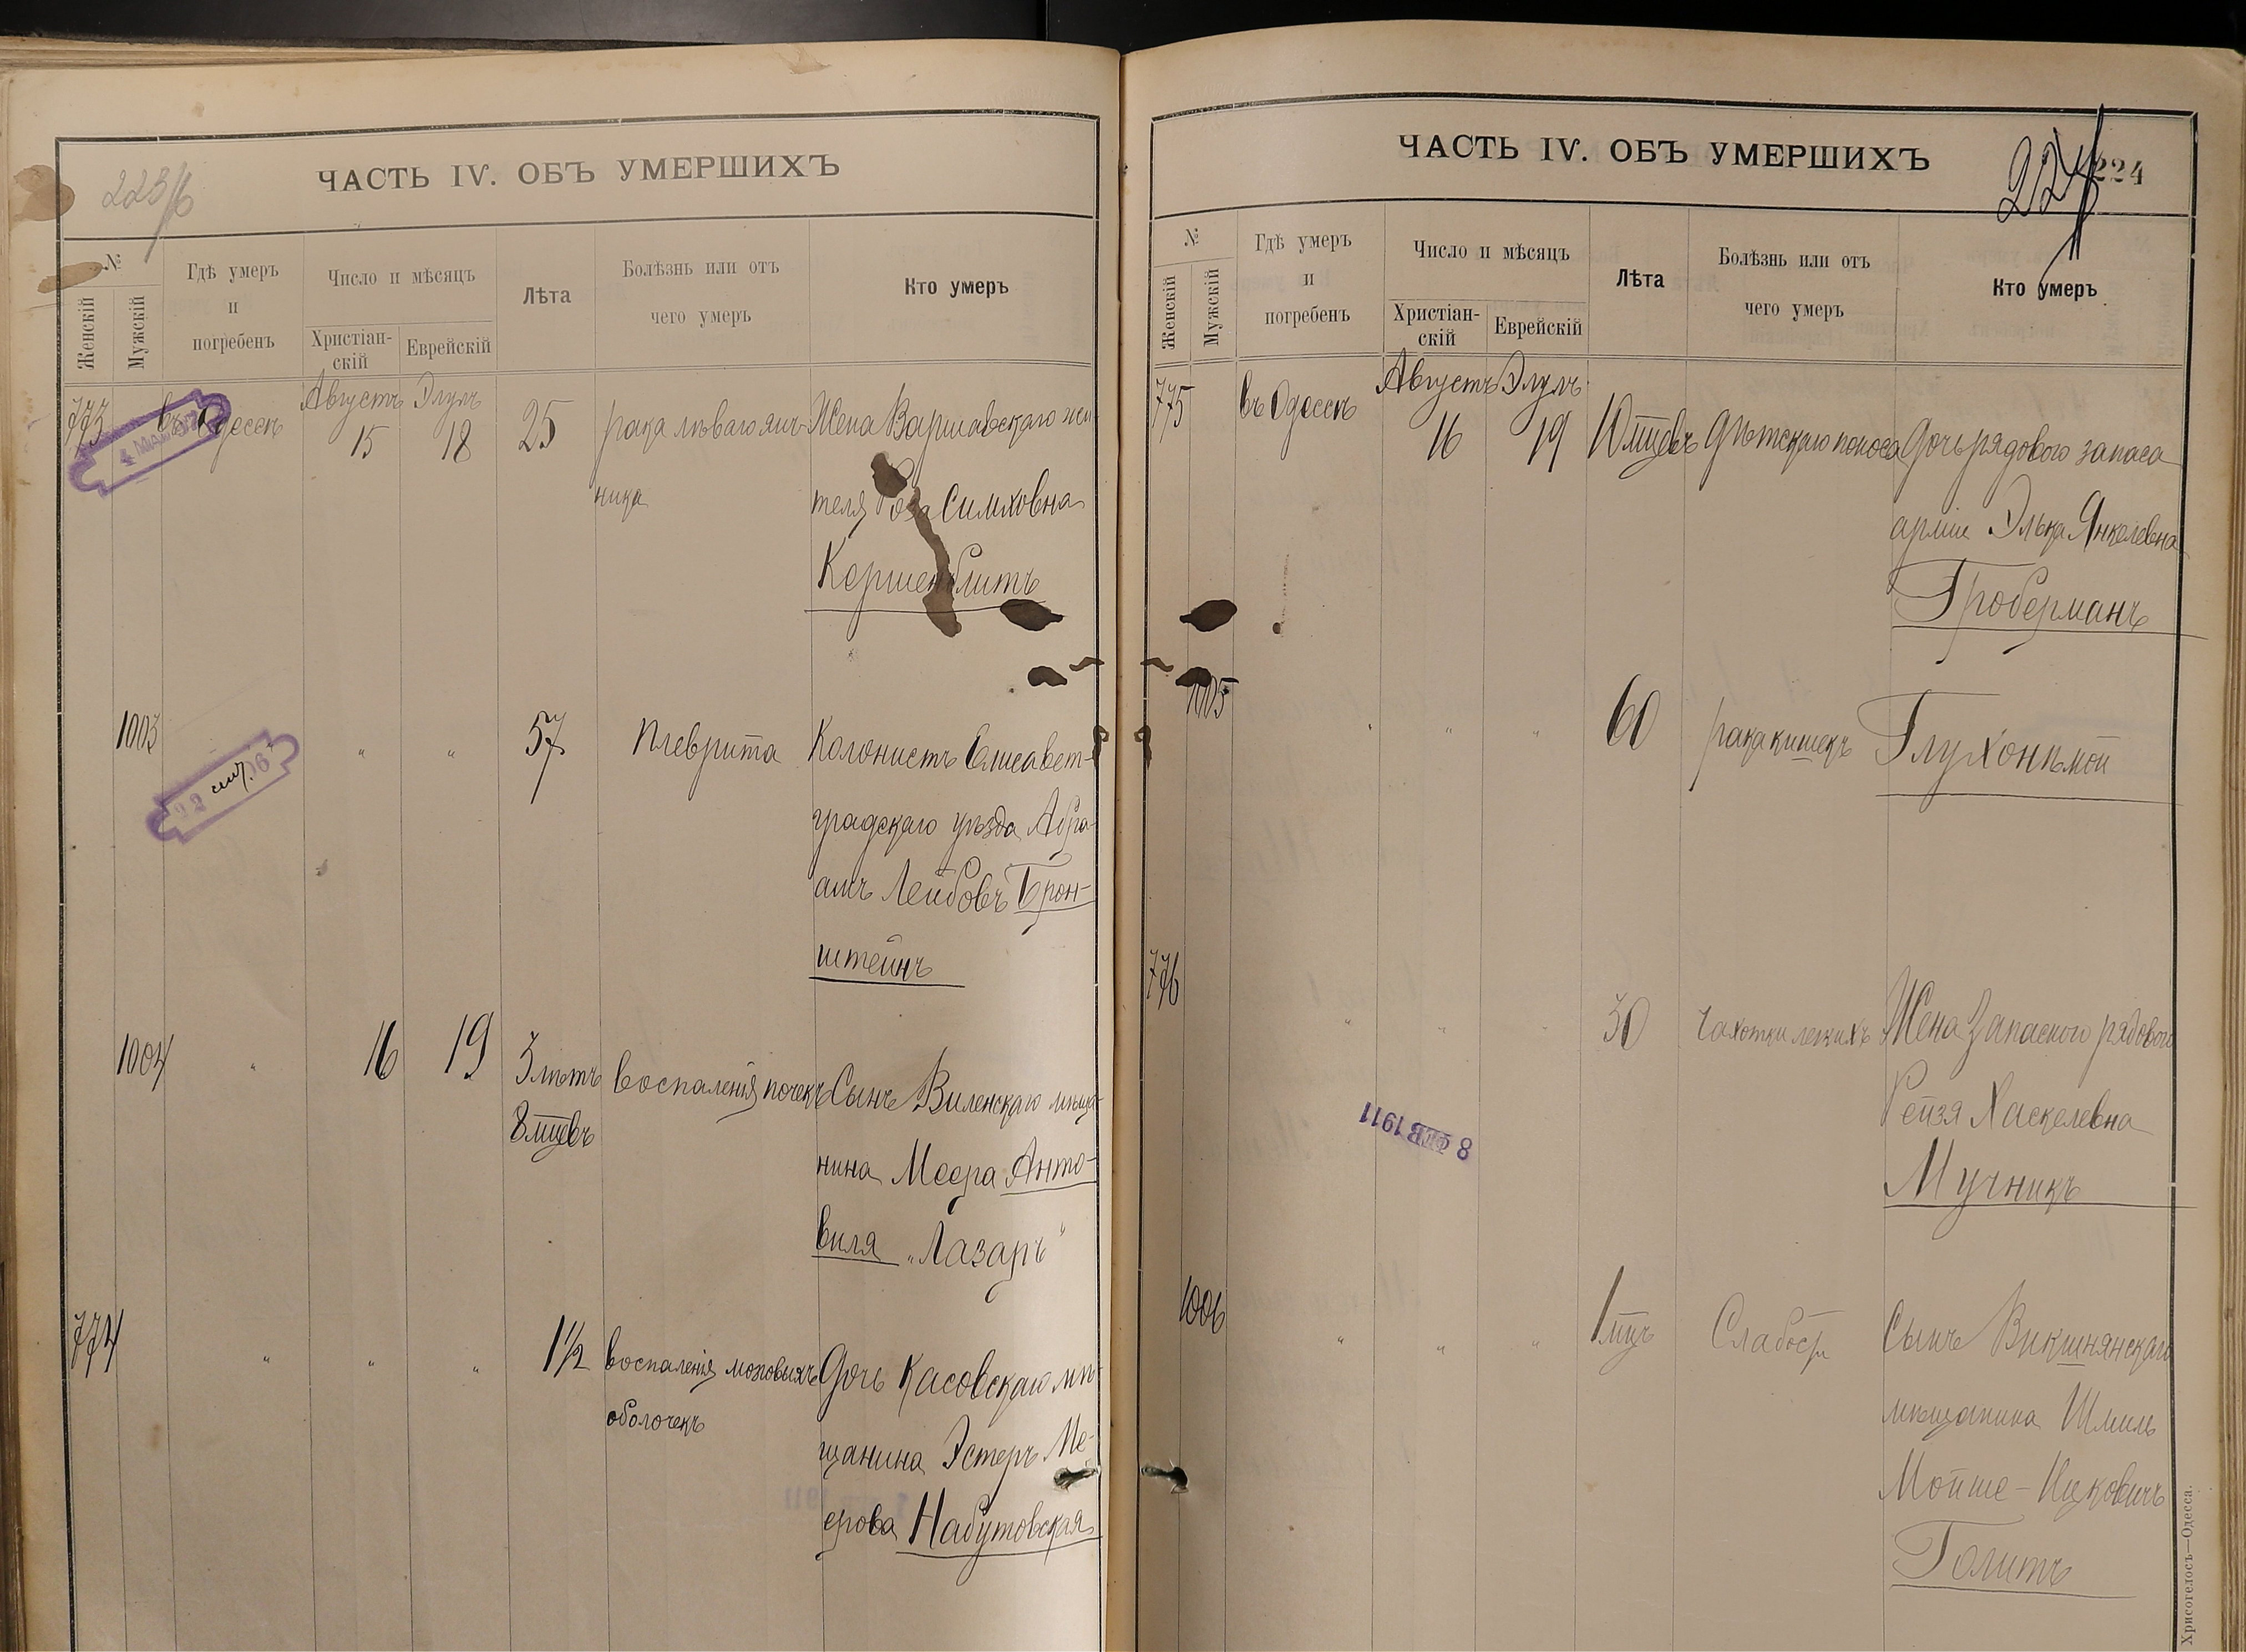 223/б
ЧАСТЬ IV. ОБЪ УМЕРШИХЪ
№
Женскій
Мужскій
Гдѣ умеръ
и
погребенъ
Число и мѣсяцъ
Христіан-
скій
Еврейскій
Лѣта
Болѣзнь или отъ
чего умеръ
Кто умеръ
773
въ Одессѣ
Августъ
15
Элулъ
18
25
рака лѣваго яич-
ника
Жена Варшавскаго жи-
теля Роза Симховна
Кершенблитъ
1003
"
"
57
плеврита
Колонистъ Елисавет-
градскаго уѣзда Абра-
амъ Лейбовъ Брон-
штейнъ
22
1004
"
16
19
3 лѣтъ
8 мцевъ
воспаленія почекъ
Сынъ Виленскаго мѣща-
нина Меера Анто-
виля „Лазарь"
774
"
"
"
1½
воспаленія мозговыхъ
оболочекъ
Дочь Касовскаго мѣ-
щанина Эстеръ Ме-
ерова Набутовская
ЧАСТЬ IV. ОБЪ УМЕРШИХЪ
224
224
№
Женскій
Мужскій
Гдѣ умеръ
и
погребенъ
Число и мѣсяцъ
Христіан-
скій
Еврейскій
Лѣта
Болѣзнь или отъ
чего умеръ
Кто умеръ
775
въ Одессѣ
Августъ
16
Элулъ
19
10 мцевъ
дѣтскаго поноса
Дочь рядового запаса
арміи Элька Янкелевна
Гроберманъ
1005
"
"
"
60
рака кишекъ
Глухонѣмой
776
"
"
"
30
чахотки легкихъ
Жена запаснаго рядового
Рейзя Хаскелевна
Мучникъ
8 ФЕВ 1911
1006
"
"
"
1 мцъ
Слабость
Сынъ Викшнянскаго
мѣщанина Шмиль
Мойше-Ицковичъ
Голитъ
Хрисогелосъ—Одесса.